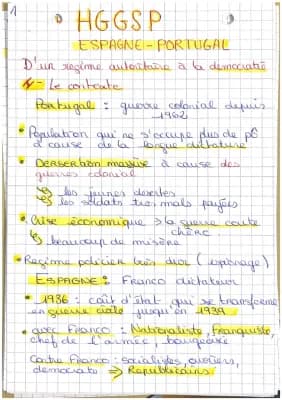 1
HGGSP
ESPAGNE-PORTUGAL
D'un regime autoritaire à la democratie
Le contexte
Portugal : guerre colonial depuis
1962
Population qui ne s'occupe plus de pô
à cause de la longue dictature
Dersertion massive à cause des
guerres colonial
les jeunes desertes
les soldats tres mals payées
Crise économique → la guerre coute
chère
beaucoup de misère
Regime policier très dur (espionage)
ESPAGNE : Franco dictateur
1936 : coût d'état qui se transforme
en guerre civile jusqu'en 1939
avec Franco : Nationaliste, Franquiste,
chef de l'armée, bourgeoisie
Contre Franco : socialistes, ouvriers,
democrate ⇒ Republicains